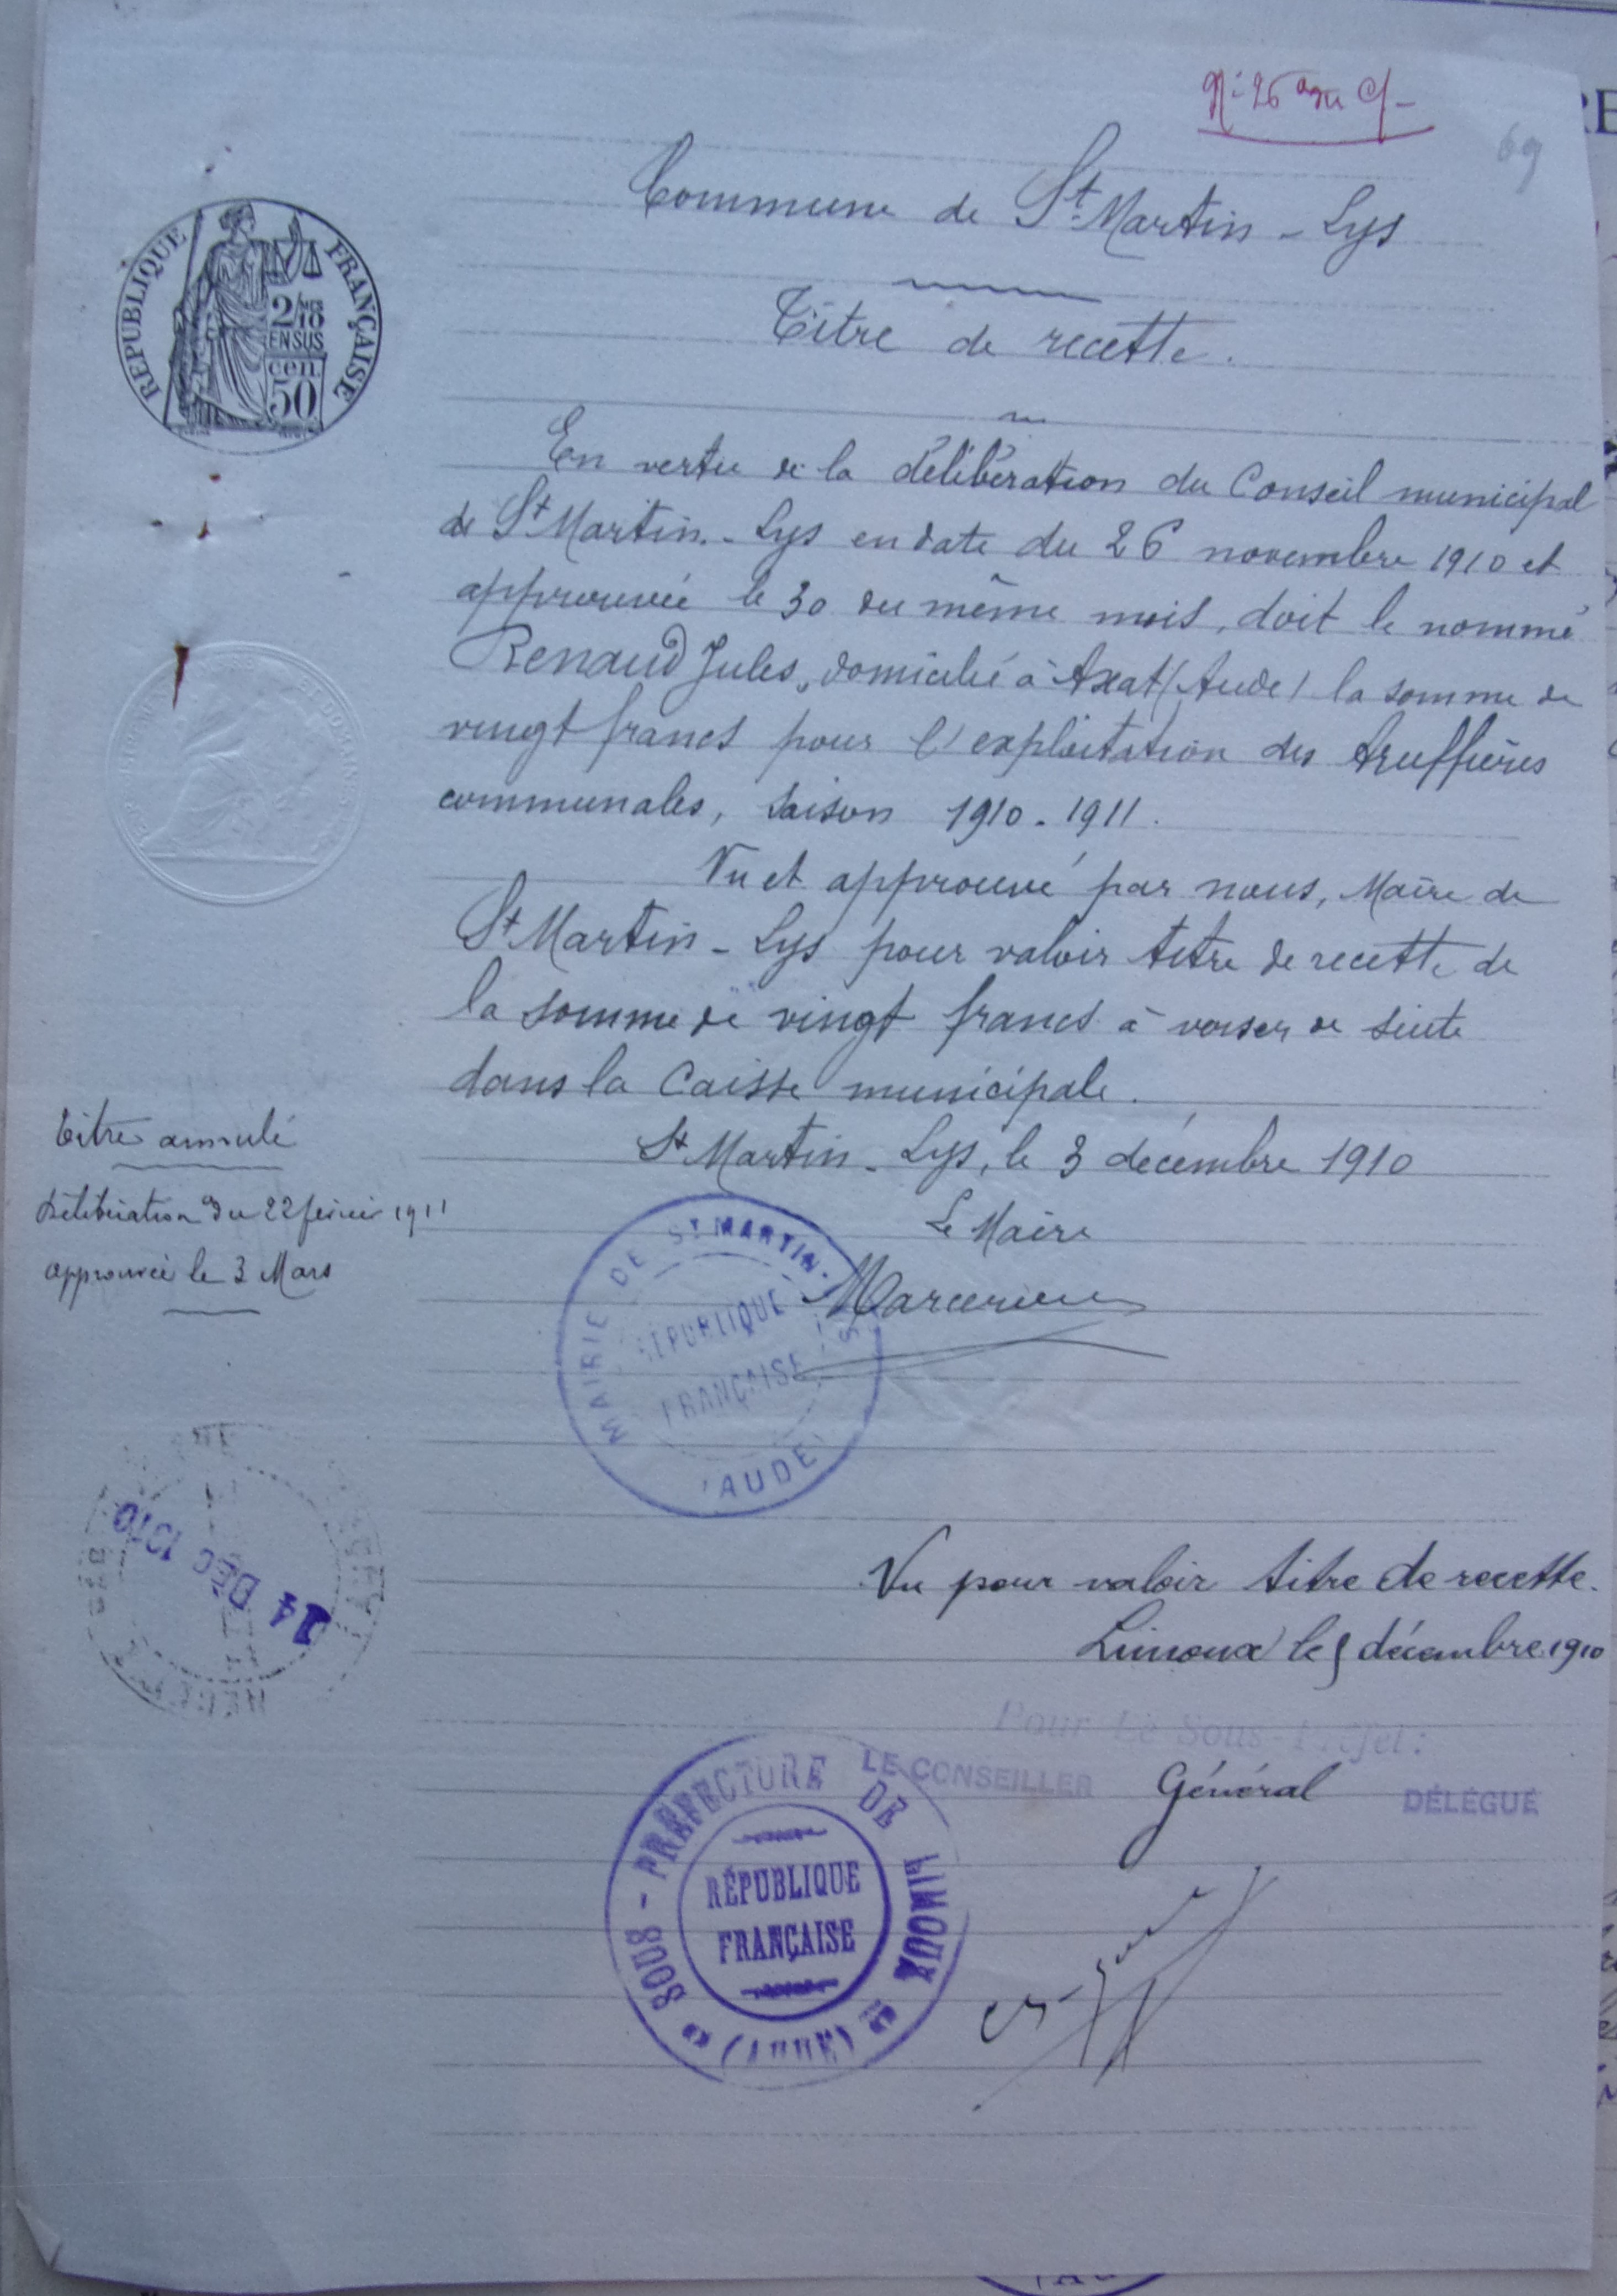 N° 26 du
69
Commune de St Martin-Lys
Titre de recette.
En vertu de la délibération du Conseil municipal
de St Martin-Lys en date du 26 novembre 1910 et
approuvée le 30 du même mois, doit le nommé
Renaud Jules, domicilié à Axat (Aude) la somme de
vingt francs pour l'exploitation des truffières
communales, saison 1910-1911.
Vu et approuvé par nous, Maire de
St Martin-Lys pour valoir titre de recette de
la somme de vingt francs à verser de suite
dans la Caisse municipale.
St Martin-Lys, le 3 décembre 1910
Le Maire
RÉPUBLIQUE FRANÇAISE
2/10 MES
EN SUS
50 cen.
Titre annulé
Délibération du 22 février 1911
approuvée le 3 Mars
MAIRIE DE ST MARTIN-LYS
RÉPUBLIQUE
FRANÇAISE
(AUDE)
14 DÉC 1910
Vu pour valoir titre de recette.
Limoux le 5 décembre 1910
Pour Le Sous-Préfet:
LE CONSEILLER Général DÉLÉGUÉ
SOUS-PRÉFECTURE DE LIMOUX
RÉPUBLIQUE
FRANÇAISE
(AUDE)